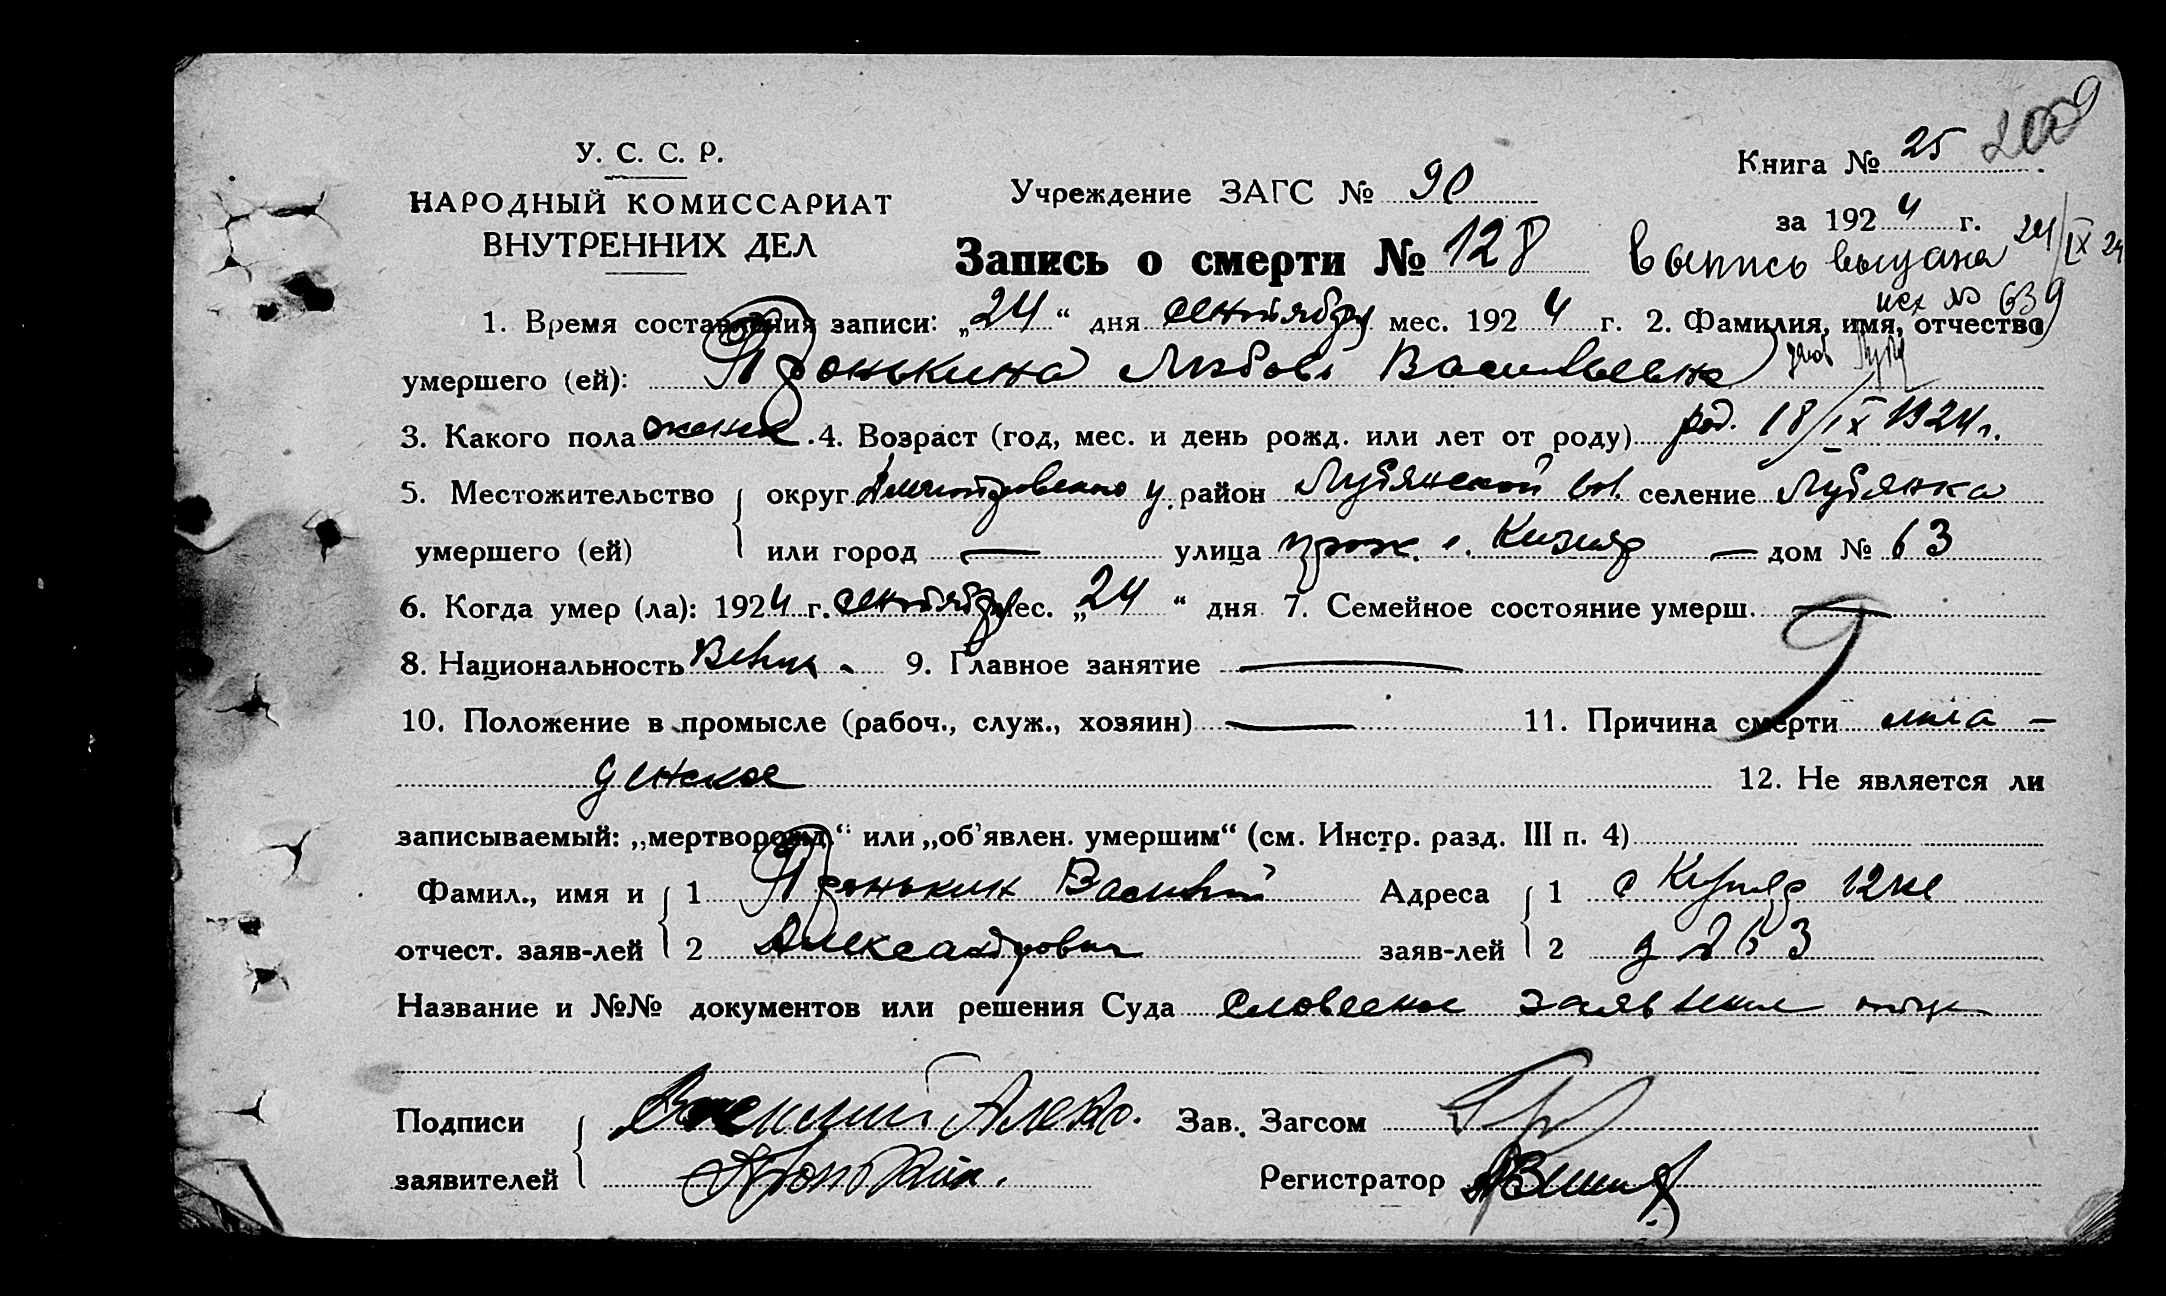 У. С. С. Р.
НАРОДНЫЙ КОМИССАРИАТ
ВНУТРЕННИХ ДЕЛ
Учреждение ЗАГС № 90
Книга № 25
за 1924 г.
Запись о смерти № 128
выпись выдана 24/IX 24
исх № 639
1. Время составления записи: „24“ дня сентября мес. 1924 г. 2. Фамилия, имя, отчество
умершего (ей): Любовь Васильевна
3. Какого пола женск. 4. Возраст (год, мес. и день рожд. или лет от роду) род. 18/IX 1924 г.
5. Местожительство округ у. район Лубянской вол. селение Лубянка
умершего (ей) или город — улица — дом № 63
6. Когда умер (ла): 1924 г. сентября мес. „24“ дня 7. Семейное состояние умерш. —
8. Национальность 9. Главное занятие —
10. Положение в промысле (рабоч., служ., хозяин) — 11. Причина смерти мла-
денское 12. Не является ли
записываемый: „мертворожд.“ или „об'явлен. умершим“ (см. Инстр. разд. III п. 4)
Фамил., имя и 1 Василий Адреса 1
отчест. заяв-лей 2 Александрович заяв-лей 2 63
Название и №№ документов или решения Суда словесное заявление отца
Подписи Василий Зав. Загсом
заявителей Регистратор